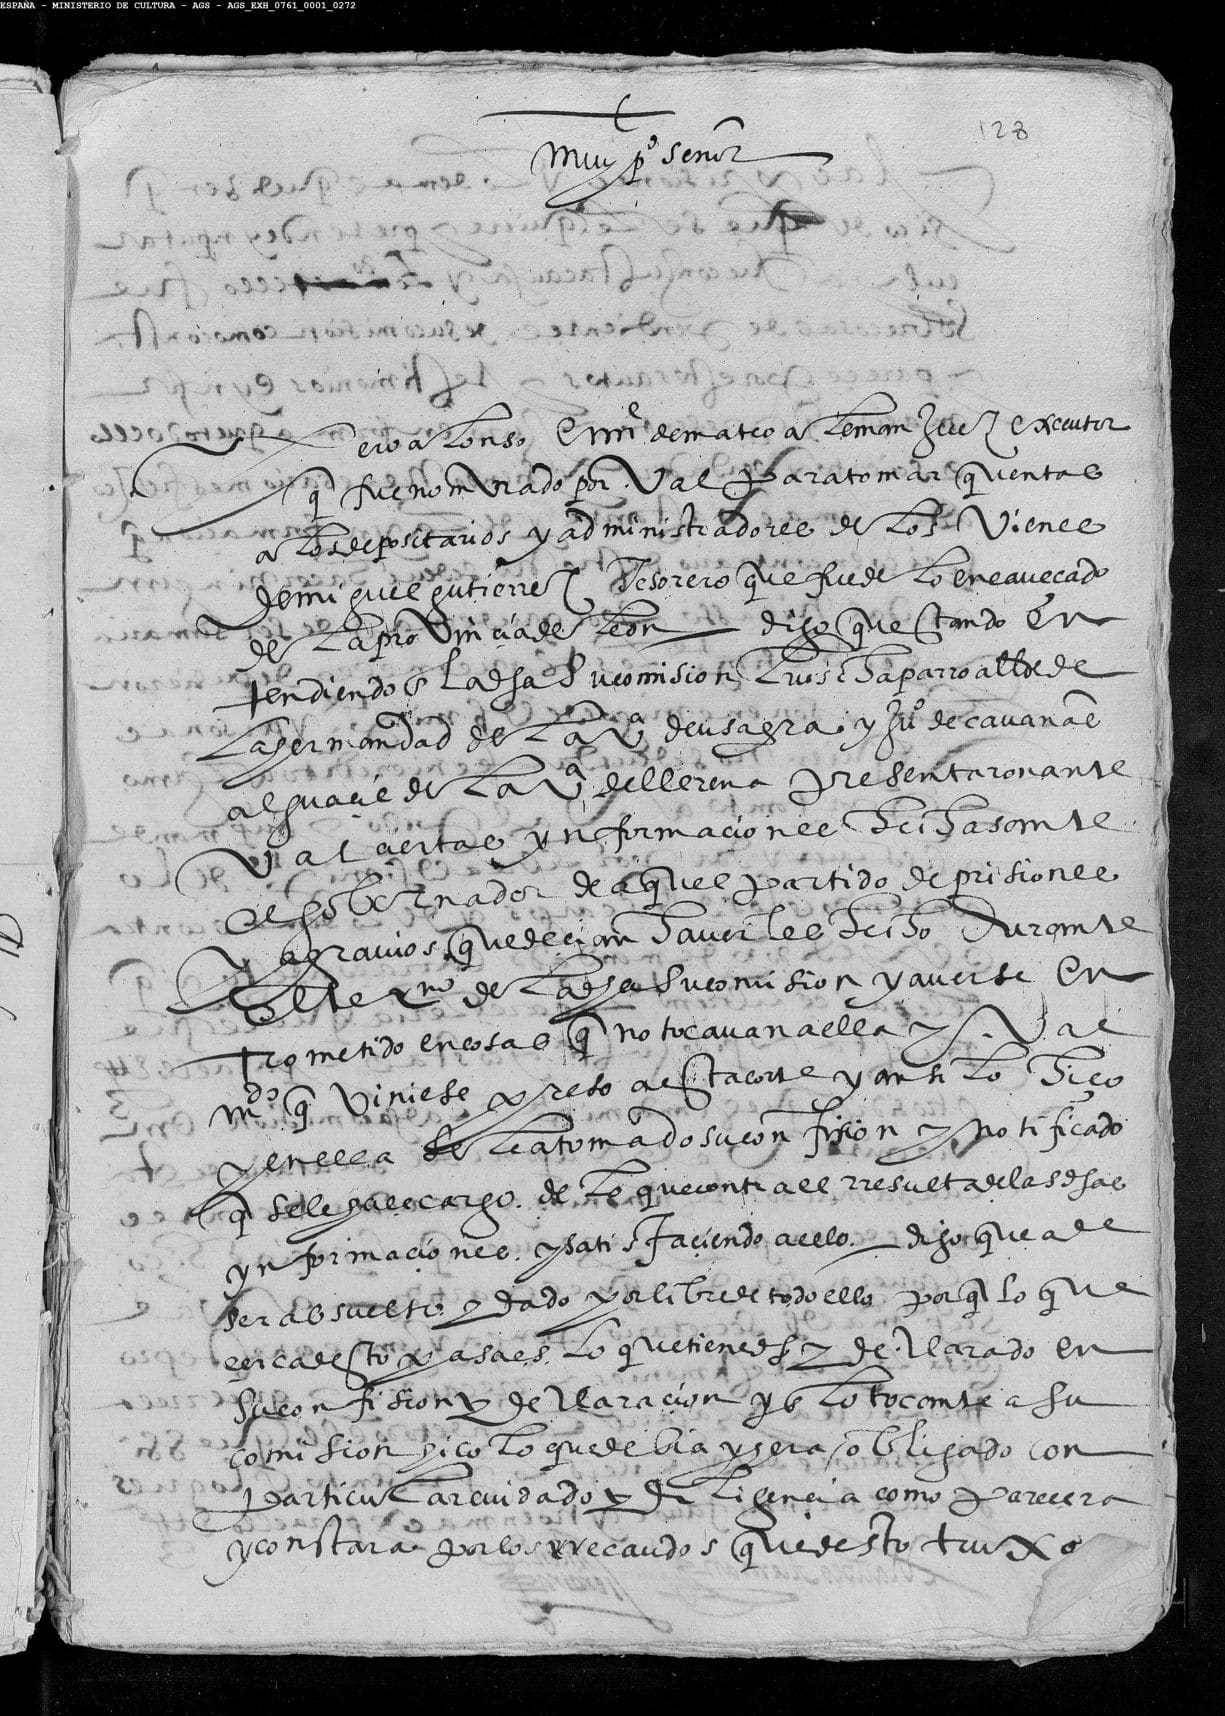 ESPAÑA - MINISTERIO DE CULTURA - AGS - AGS_EXH_0761_0001_0272
128
muy pº señor
pero alonso en nre de mateo aleman Juez executor
q fue nombrado por. V al para tomar quentas
a los depositarios y administradores de los Vienes
de miguel gutierrez Tesorero que fue de lo encaveçado
de la provinçia de leon digo questando En
tendiendo En la dha Su comision luis chaparro allde de
la hermandad de la vª de usagra y Juº de cavanas
alguaçil de la Vª de llerena presentaron ante
V al çiertas ynformaciones hechas ante
el governador de aquel partido de prisiones
y agravios que deçian haverles hecho Durante
El termº de la dha Su comision y averse En
trometido en cosas q no tocavan a ella y. V al
mdº q viniese preso a esta corte y ansi lo hiço
y en ella se le a tomado su confision y notificado
q se le haze cargo. de lo que contra el rresulta de las dhas
ynformaçiones. y satisfaçiendo a ello. digo que a de
ser absuelto y dado por libre de todo ello porq lo que
çerca desto pasa es lo que tiene dho y declarado en
su confision y declaracion y En lo tocante a su
comision hiço lo que debia y hera obligado con
particular cuidado y diligençia como pareçera
y constara por los rrecaudos que desto truxo